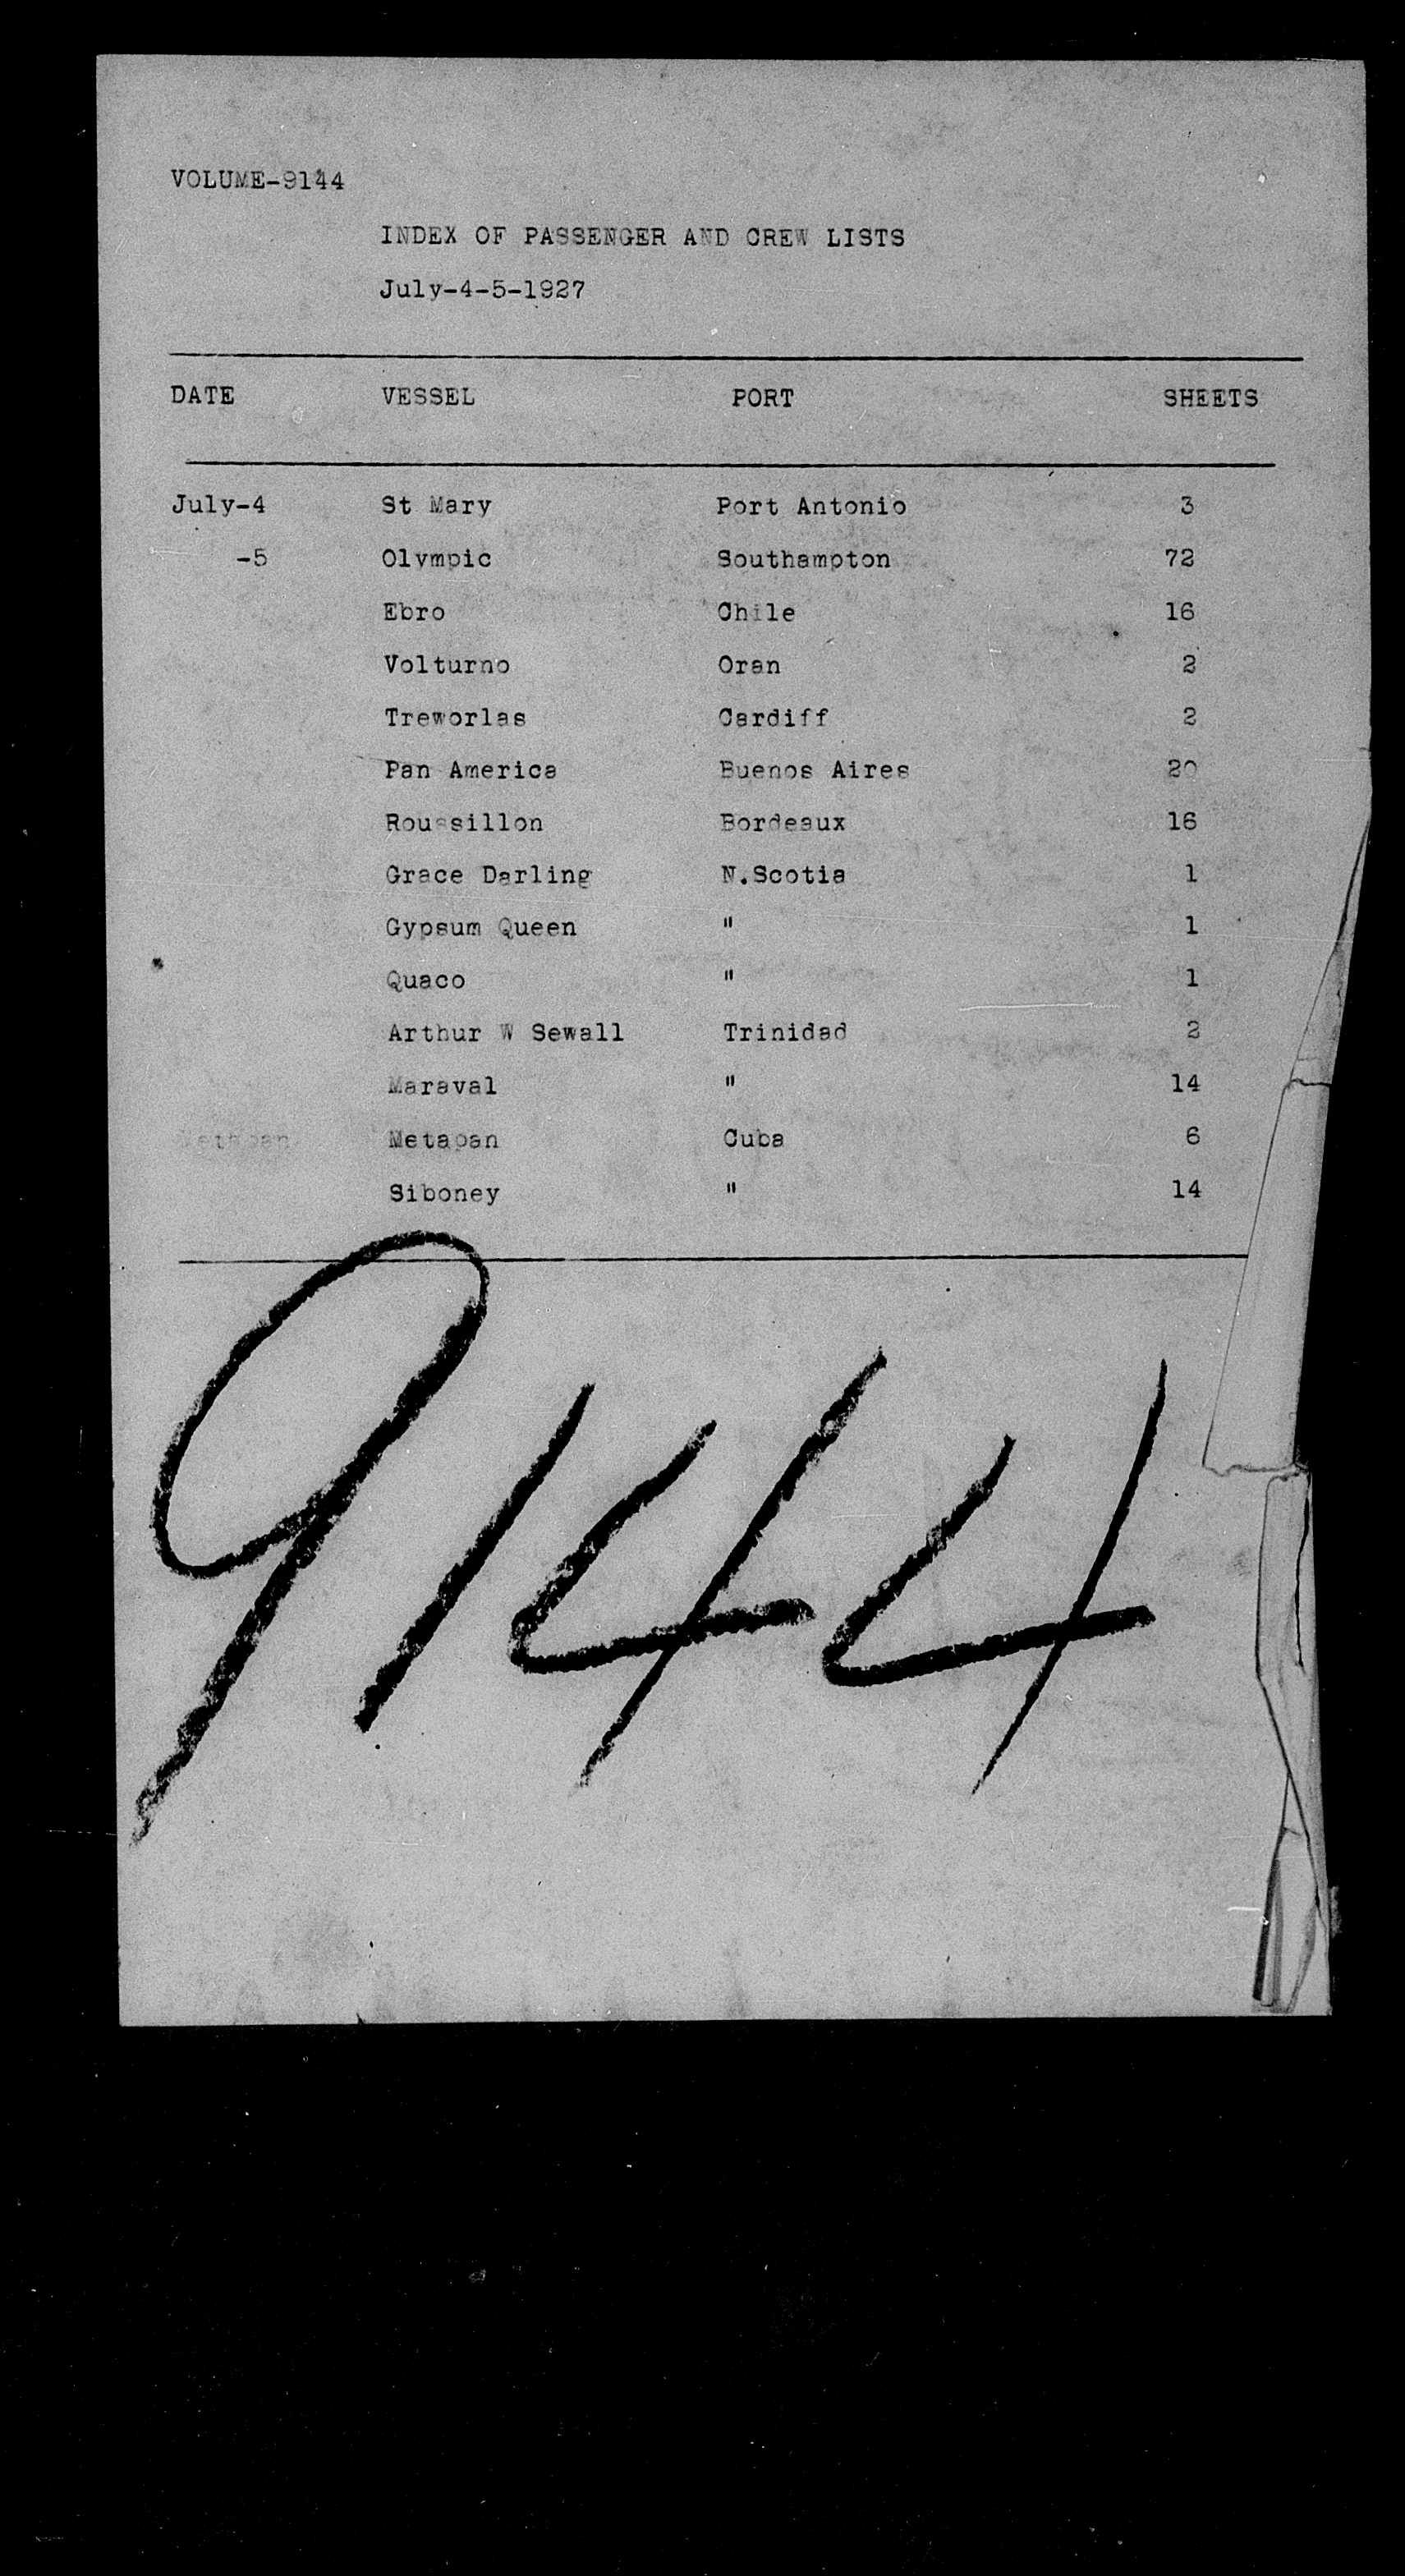 VOLUME-9144
INDEX OF PASSENGER AND CREW LISTS
July-4-5-1927
DATE VESSEL PORT SHEETS
July-4 St Mary Port Antonio 3
-5 Olympic Southampton 72
Ebro Chile 16
Volturno Oran 2
Treworlas Cardiff 2
Pan America Buenos Aires 20
Roussillon Bordeaux 16
Grace Darling N.Scotia 1
Gypsum Queen " 1
Quaco " 1
Arthur W Sewall Trinidad 2
Maraval " 14
Metapan Metapan Cuba 6
Siboney " 14
9144